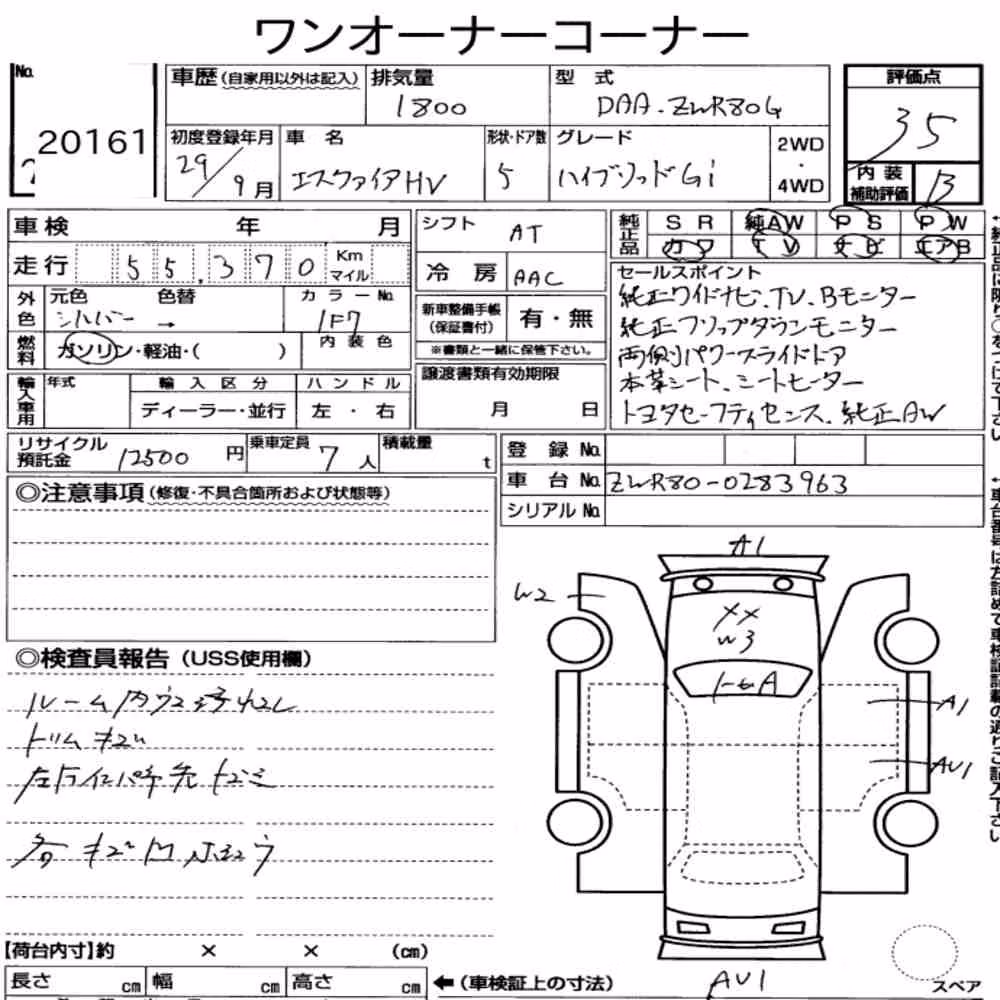 ワンオーナーコーナー
No.
20161
車歴(自家用以外は記入)
排気量
1800
型 式
DAA-ZWR80G
評価点
35
初度登録年月
29/9月
車 名
エスクァイアHV
形状・ドア数
5
グレード
ハイブリッドGi
2WD
・
4WD
内装
補助評価
B
車検 年 月
シフト
AT
純正品
SR 純AW PS PW
カワ TV ナビ エアB
走行 55,370 Km マイル
冷房
AAC
セールスポイント
純正ワイドナビ、TV、Bモニター
純正フリップダウンモニター
両側パワースライドドア
本革シート、シートヒーター
トヨタセーフティセンス、純正AW
外色
元色 色替
シルバー →
カラーNo.
1F7
新車整備手帳
(保証書付)
有・無
※書類と一緒に保管下さい。
燃料
ガソリン・軽油・( )
内装色
輸入車用
年式
輸入区分
ディーラー・並行
ハンドル
左・右
譲渡書類有効期限
月 日
リサイクル
預託金
12500 円
乗車定員
7 人
積載量
t
登録No.
車台No. ZWR80-0283963
シリアルNo.
◎注意事項(修復・不具合箇所および状態等)
◎検査員報告(USS使用欄)
ルーム内
トリムキズ
各キズ凹
A1
W2
XX
W3
A
A1
AU1
AU1
スペア
【荷台内寸】約 × × (cm)
長さ cm 幅 cm 高さ cm
←(車検証上の寸法)